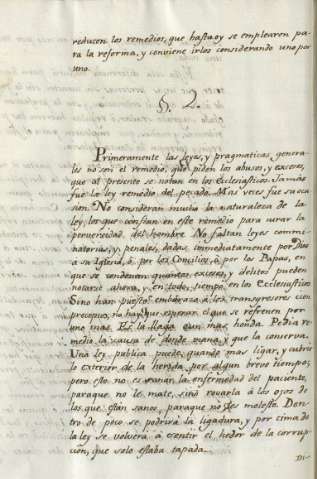 reducen los remedios, que hasta oy se emplearen pa-
ra la reforma, y conviene irlos considerando uno por
uno.
§. 2.
Primeramente las leyes, y pragmaticas, genera-
les no son el remedio, que piden los abusos, y excesos,
que al presente se notan en los Eclesiasticos. Jamàs
fue la ley remedio del pecado. Mas veces fue su oca
sion. No consideran mucho la naturaleza de la
ley, los que confian en este remedio para curar la
perversidad del hombre. No faltan leyes commi-
natorias, y penales, dadas immediatamente por Dios
a su Iglesia, ò por los Concilios, ò por los Papas, en
que se condenan quantos excesos, y delitos pueden
notarse ahora, y en todo tiempo en los Eclesiasticos
Sino han puesto embarazo à los transgresores con
preceptos, no hay que esperar el que se refrenen por
uno mas. Es la llaga aun mas honda. Pedia re-
medio la causa de donde mana, y que la conserva.
Una Ley publica puede, quando mas ligar, y cubrir
lo exterior de la herida, por algun breve tiempo;
pero esto no es sanar la enfermedad del paciente,
paraque no le mate, sinò a los ojos de
los que estan sanos, paraque no les moleste. Den-
tro de poco se podrirà la ligadura, y por cima de
la ley se volverà à sentir el hedor de la corrup-
cion, que solo estaba tapada.